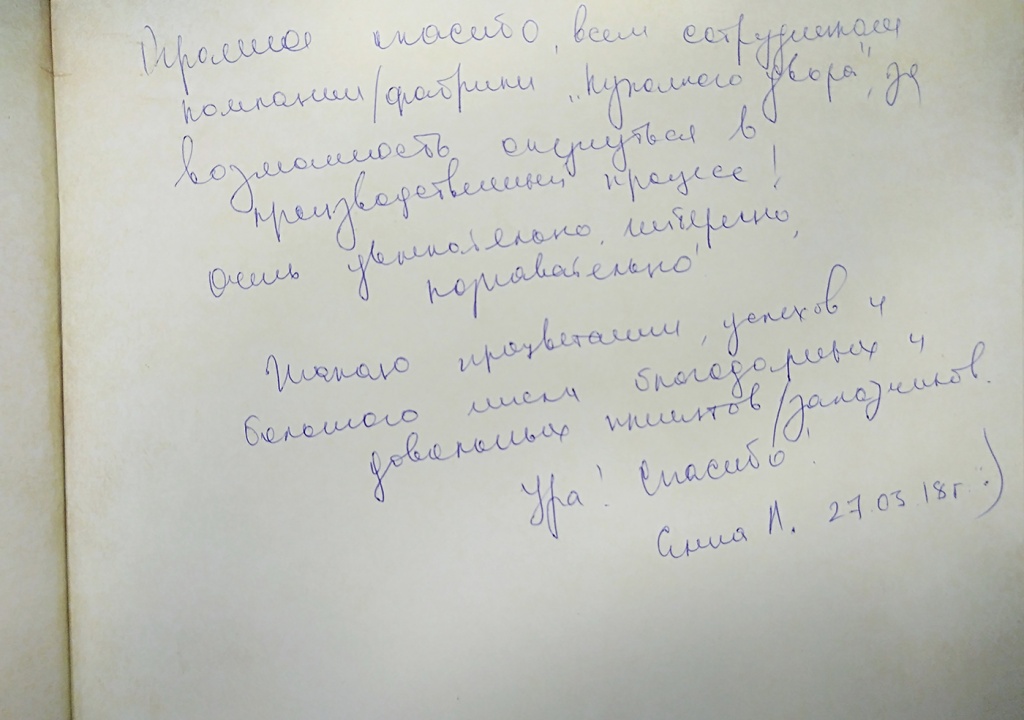 Огромное спасибо, всем сотрудникам
компании/фабрики „Кухонного двора", за
возможность окунуться в
производственный процесс!
Очень увлекательно, интересно,
познавательно!
Желаю процветания, успехов и
большого числа благодарных и
довольных клиентов/заказчиков.
Ура! Спасибо!
27.03.18г. :)